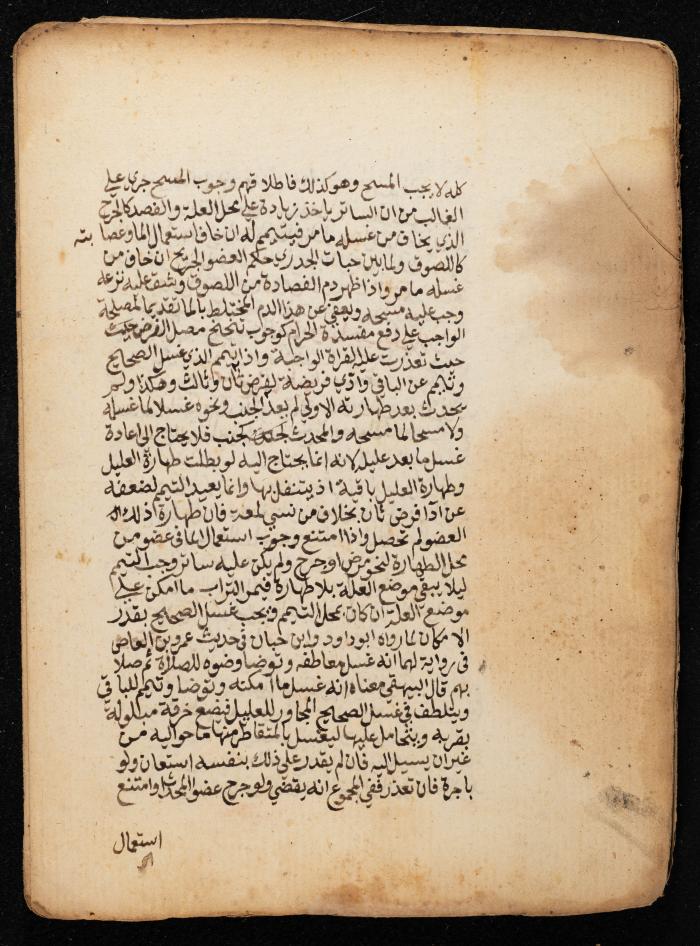 كله لا يجب المسح وهو كذلك فاطلاقهم وجوب المسح جرى على
الغالب من ان الساتر ياخذ زيادة على محل العلة والفصد كالجرح
الذي يخاف من غسله ما مر فيتيمم له ان خاف استعمال الماء وعصابته
كاللصوق ولما بين حبات الجدري حكم العضو الجريح ان خاف من
غسله ما مر واذا ظهر دم الفصادة من اللصوق وشق عليه نزعه
وجب عليه مسحه ويعفى عن هذا الدم المختلط بالما تقديما لمصلحة
الواجب على دفع مفسدة الحرام كوجوب تنحنح مصل الفرض حيث
حيث تعذرت عليه القراة الواجبة واذا تيمم الذي غسل الصحيح
وتيمم عن الباقي وادى فريضة لفرض ثان وثالث وهكذا ولم
يحدث بعد طهارته الاولى لم يعد الجنب ونحوه غسلا لما غسله
ولا مسحا لما مسحه والمحدث كجنب فلا يحتاج الى اعادة
غسل ما بعد عليله لانه انما يحتاج اليه لو بطلت طهارة العليل
وطهارة العليل باقية اذ يتنفل بها وانما يعيد التيمم لضعفه
عن اذا فرض ثان بخلاف من نسي لمعة فان طهارة ذلك
العضو لم تحصل واذا امتنع وجوب استعمال الما في عضو من
محل الطهارة لنحو مرض او جرح ولم يكن عليه ساتر وجب التيمم
ليلا يبقى موضع العلة بلا طهارة فيمر التراب ما امكن على
موضع العلة ان كان بمحل التيمم ويجب غسل الصحيح بقدر
الامكان لما رواه ابو داود وابن حبان في حديث عمرو بن العاص
في رواية لهما انه غسل معاطفه وتوضا وضوه للصلاة ثم صلا
بهم قال البيهقي معناه انه غسل ما امكنه وتوضا وتيمم للباقي
ويتلطف في غسل الصحيح المجاور للعليل فيضع خرقة مبلولة
بقربه ويتحامل عليها ليغسل بالمتقاطر منها ما حواليه من
غير ان يسيل اليه فان لم يقدر على ذلك بنفسه استعان ولو
باجرة فان تعذر ففي المجموع انه يقضي ولو جرح عضو المحدث وامتنع
استعمال